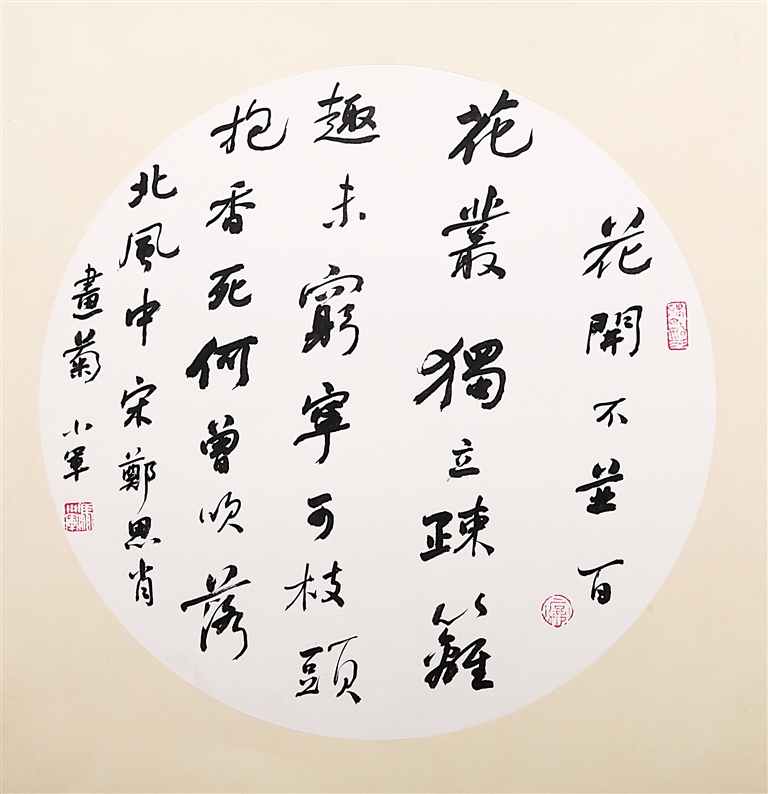 花開不並百
花叢獨立疎籬
趣未窮寧可枝頭
抱香死何曾吹落
北風中宋鄭思肖
畫菊小軍